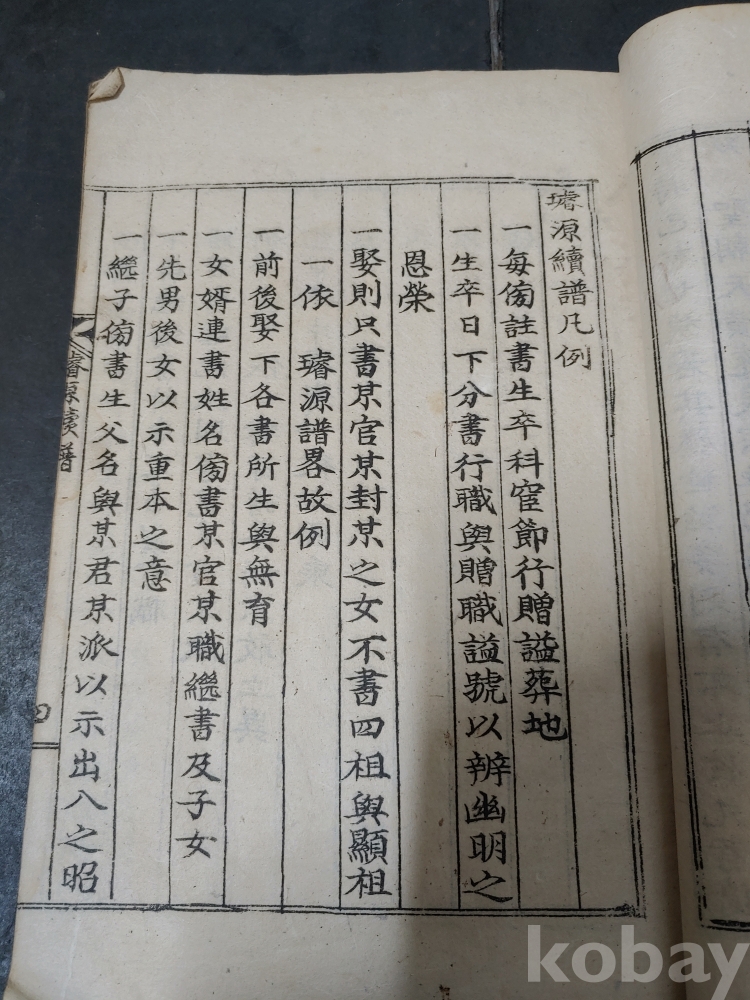 璿源續譜凡例
一每傍註書生卒科宦節行贈謚葬地
一生卒日下分書行職與贈職謚號以辨幽明之
恩榮
一娶則只書某官某封某之女不書四祖與顯祖
一依 璿源譜畧故例
一前後娶下各書所生與無育
一女婿連書姓名傍書某官某職繼書及子女
一先男後女以示重本之意
一繼子傍書生父名與某君某派以示出入之昭
璿源續譜
kobay